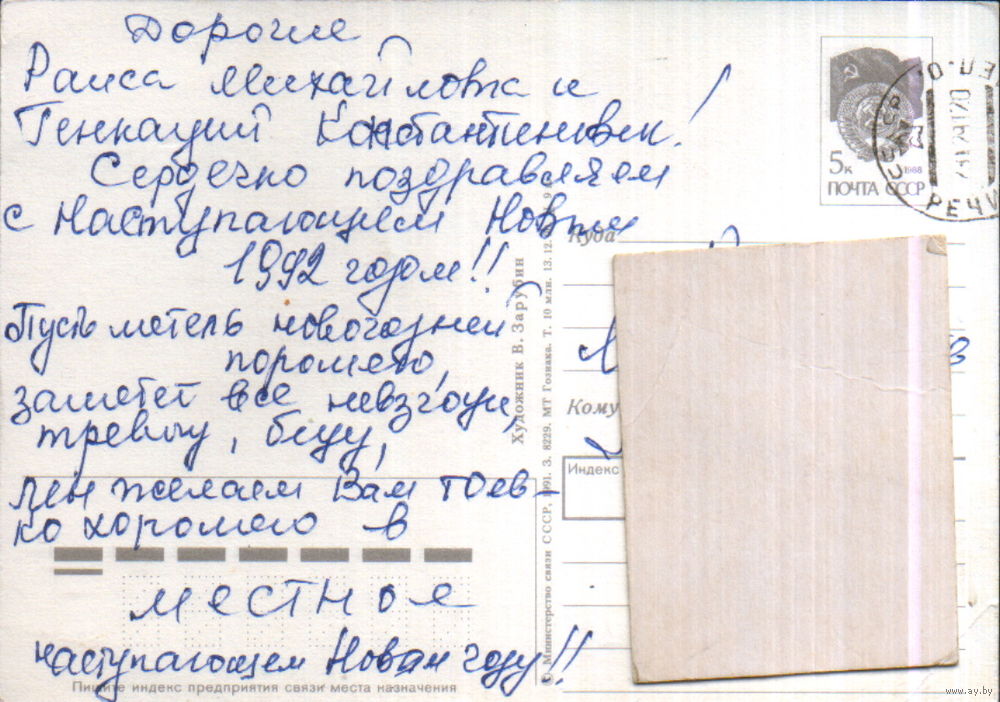 Дорогие
Раиса Михайловна и
Геннадий Константинович!
Сердечно поздравляем
с Наступающем Новым
1992 годом!!
Пусть метель новогодней
порошею,
заметет все невзгоды,
тревогу, беду,
мы желаем Вам только
хорошего в
местное
наступающем Новом году!!
Пишите индекс предприятия связи места назначения
Художник В. Зарубин
© Министерство связи СССР, 1991. З. 8229. МТ Гознака. Т. 10 млн. 13.12.
5к
1988
ПОЧТА СССР
РЕЧИ
Куда
Кому
Индекс
www.ay.by